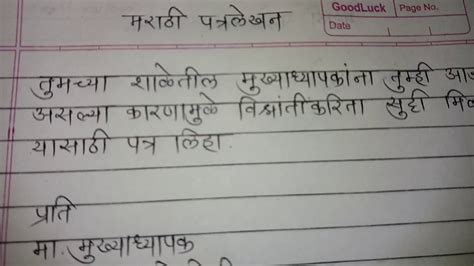 GoodLuck Page No.
Date
मराठी पत्रलेखन
तुमच्या शाळेतील मुख्याध्यापकांना तुम्ही
असल्या कारणामुळे विश्रांतीकरिता सुट्टी
यासाठी पत्र लिहा.
प्रति
मा. मुख्याध्यापक